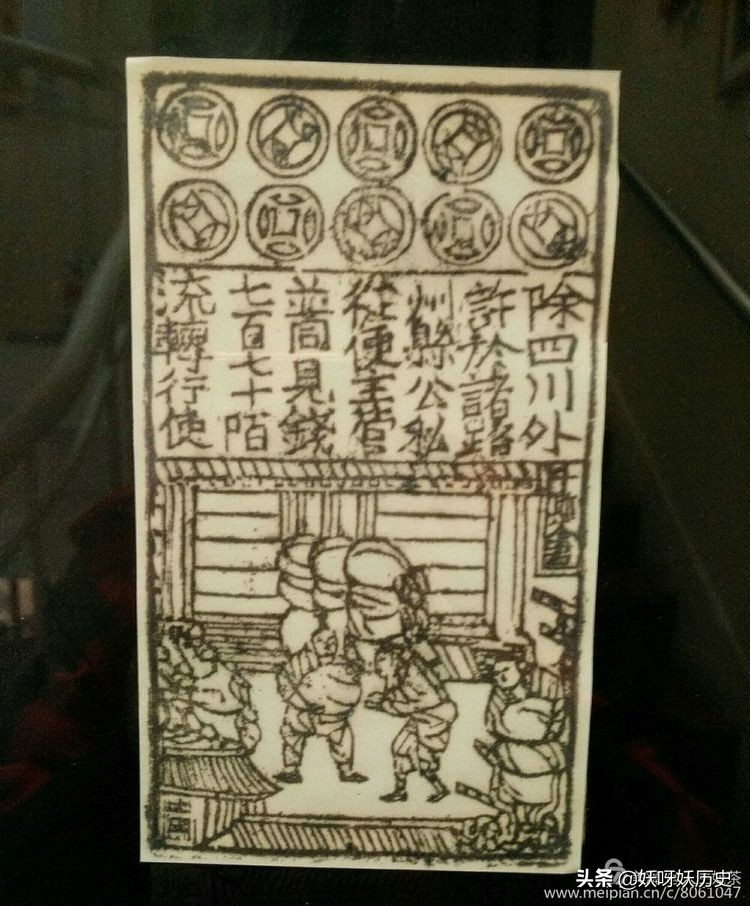 除四川外
許於諸路
州縣公私
從便主管
並同見錢
七百七十陌
流轉行使
头条 @妖呀妖历史
www.meipian.cn/c/8061047